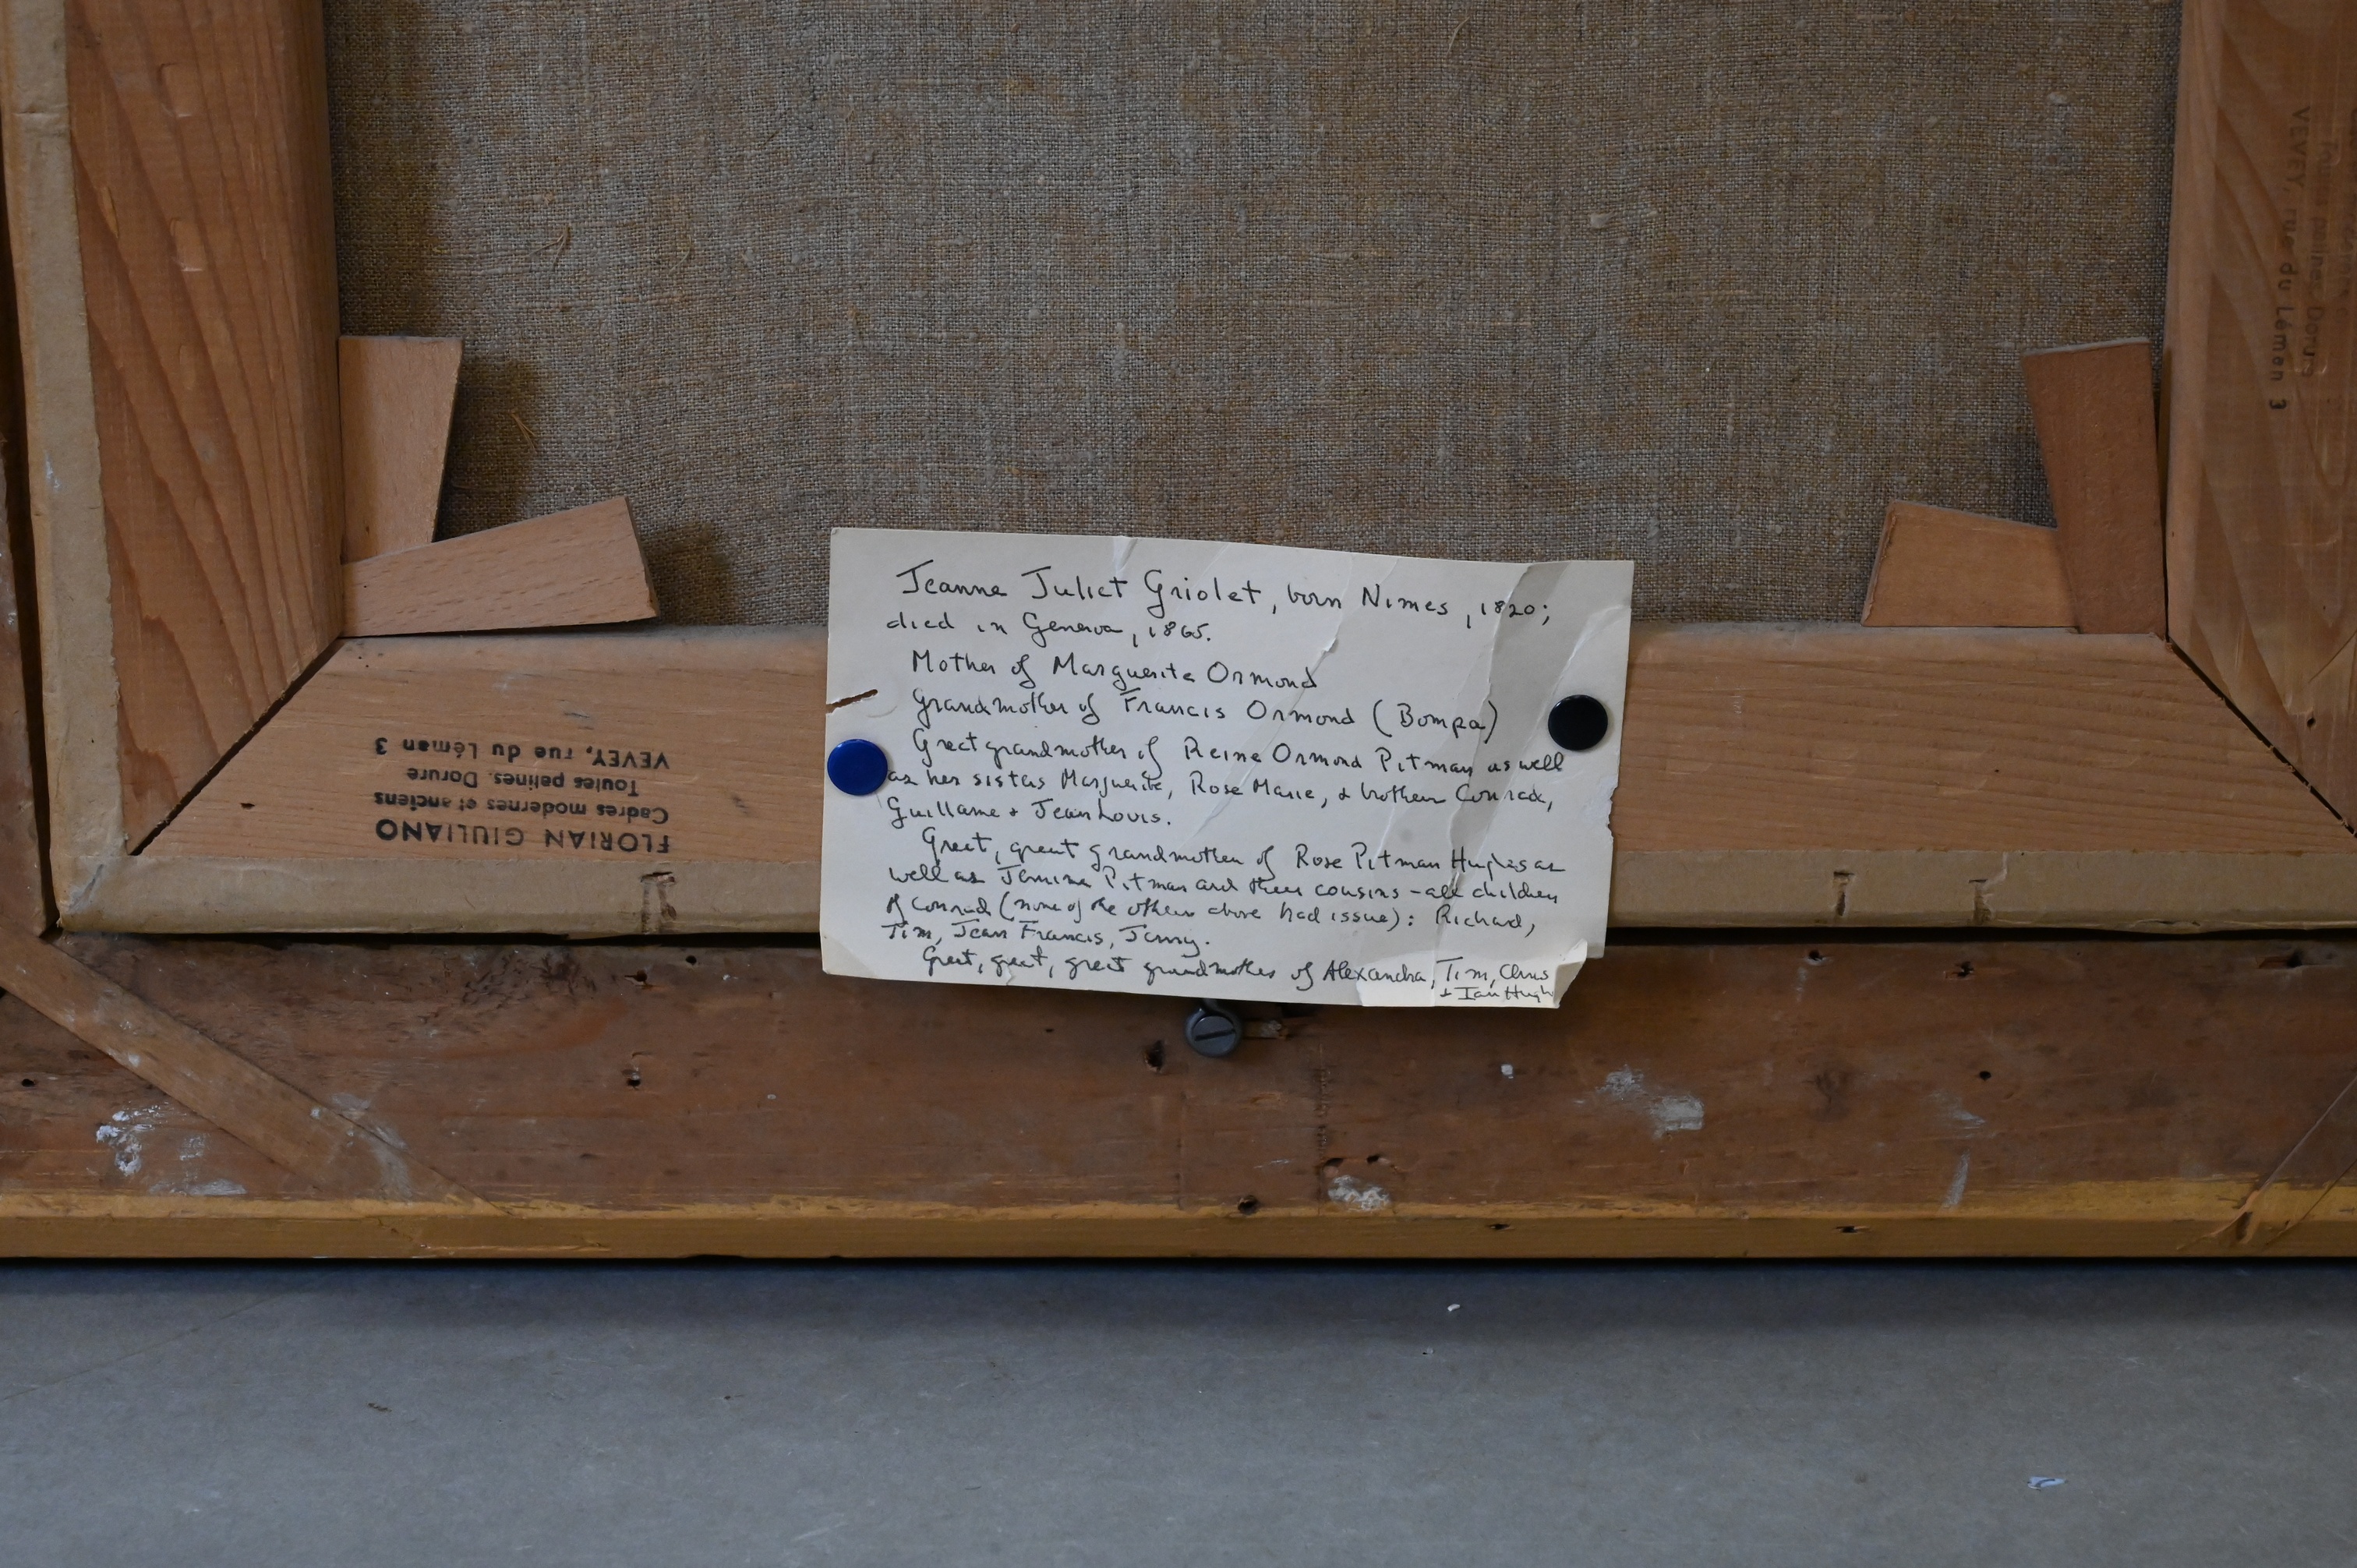 Jeanne Juliet Griolet, born Nimes, 1820;
died in Geneva, 1865.
Mother of Marguerite Ormond
Grandmother of Francis Ormond (Bompa)
Great grandmother of Reine Ormond Pitman as well
as her sisters Marguerite, Rose Marie, & brothers Conrad,
Guillame & Jean Louis.
Great, great grandmother of Rose Pitman Hughes as
well as Jemima Pitman and their cousins - all children
of Conrad (none of the others above had issue): Richard,
Tim, Jean Francis, Jenny.
Great, great, great grandmother of Alexandra, Tim, Chris
& Ian Hugh
FLORIAN GIULIANO
Cadres modernes et anciens
Toutes patines. Dorure
VEVEY, rue du Léman 3
Toutes patines. Dorure
VEVEY, rue du Léman 3